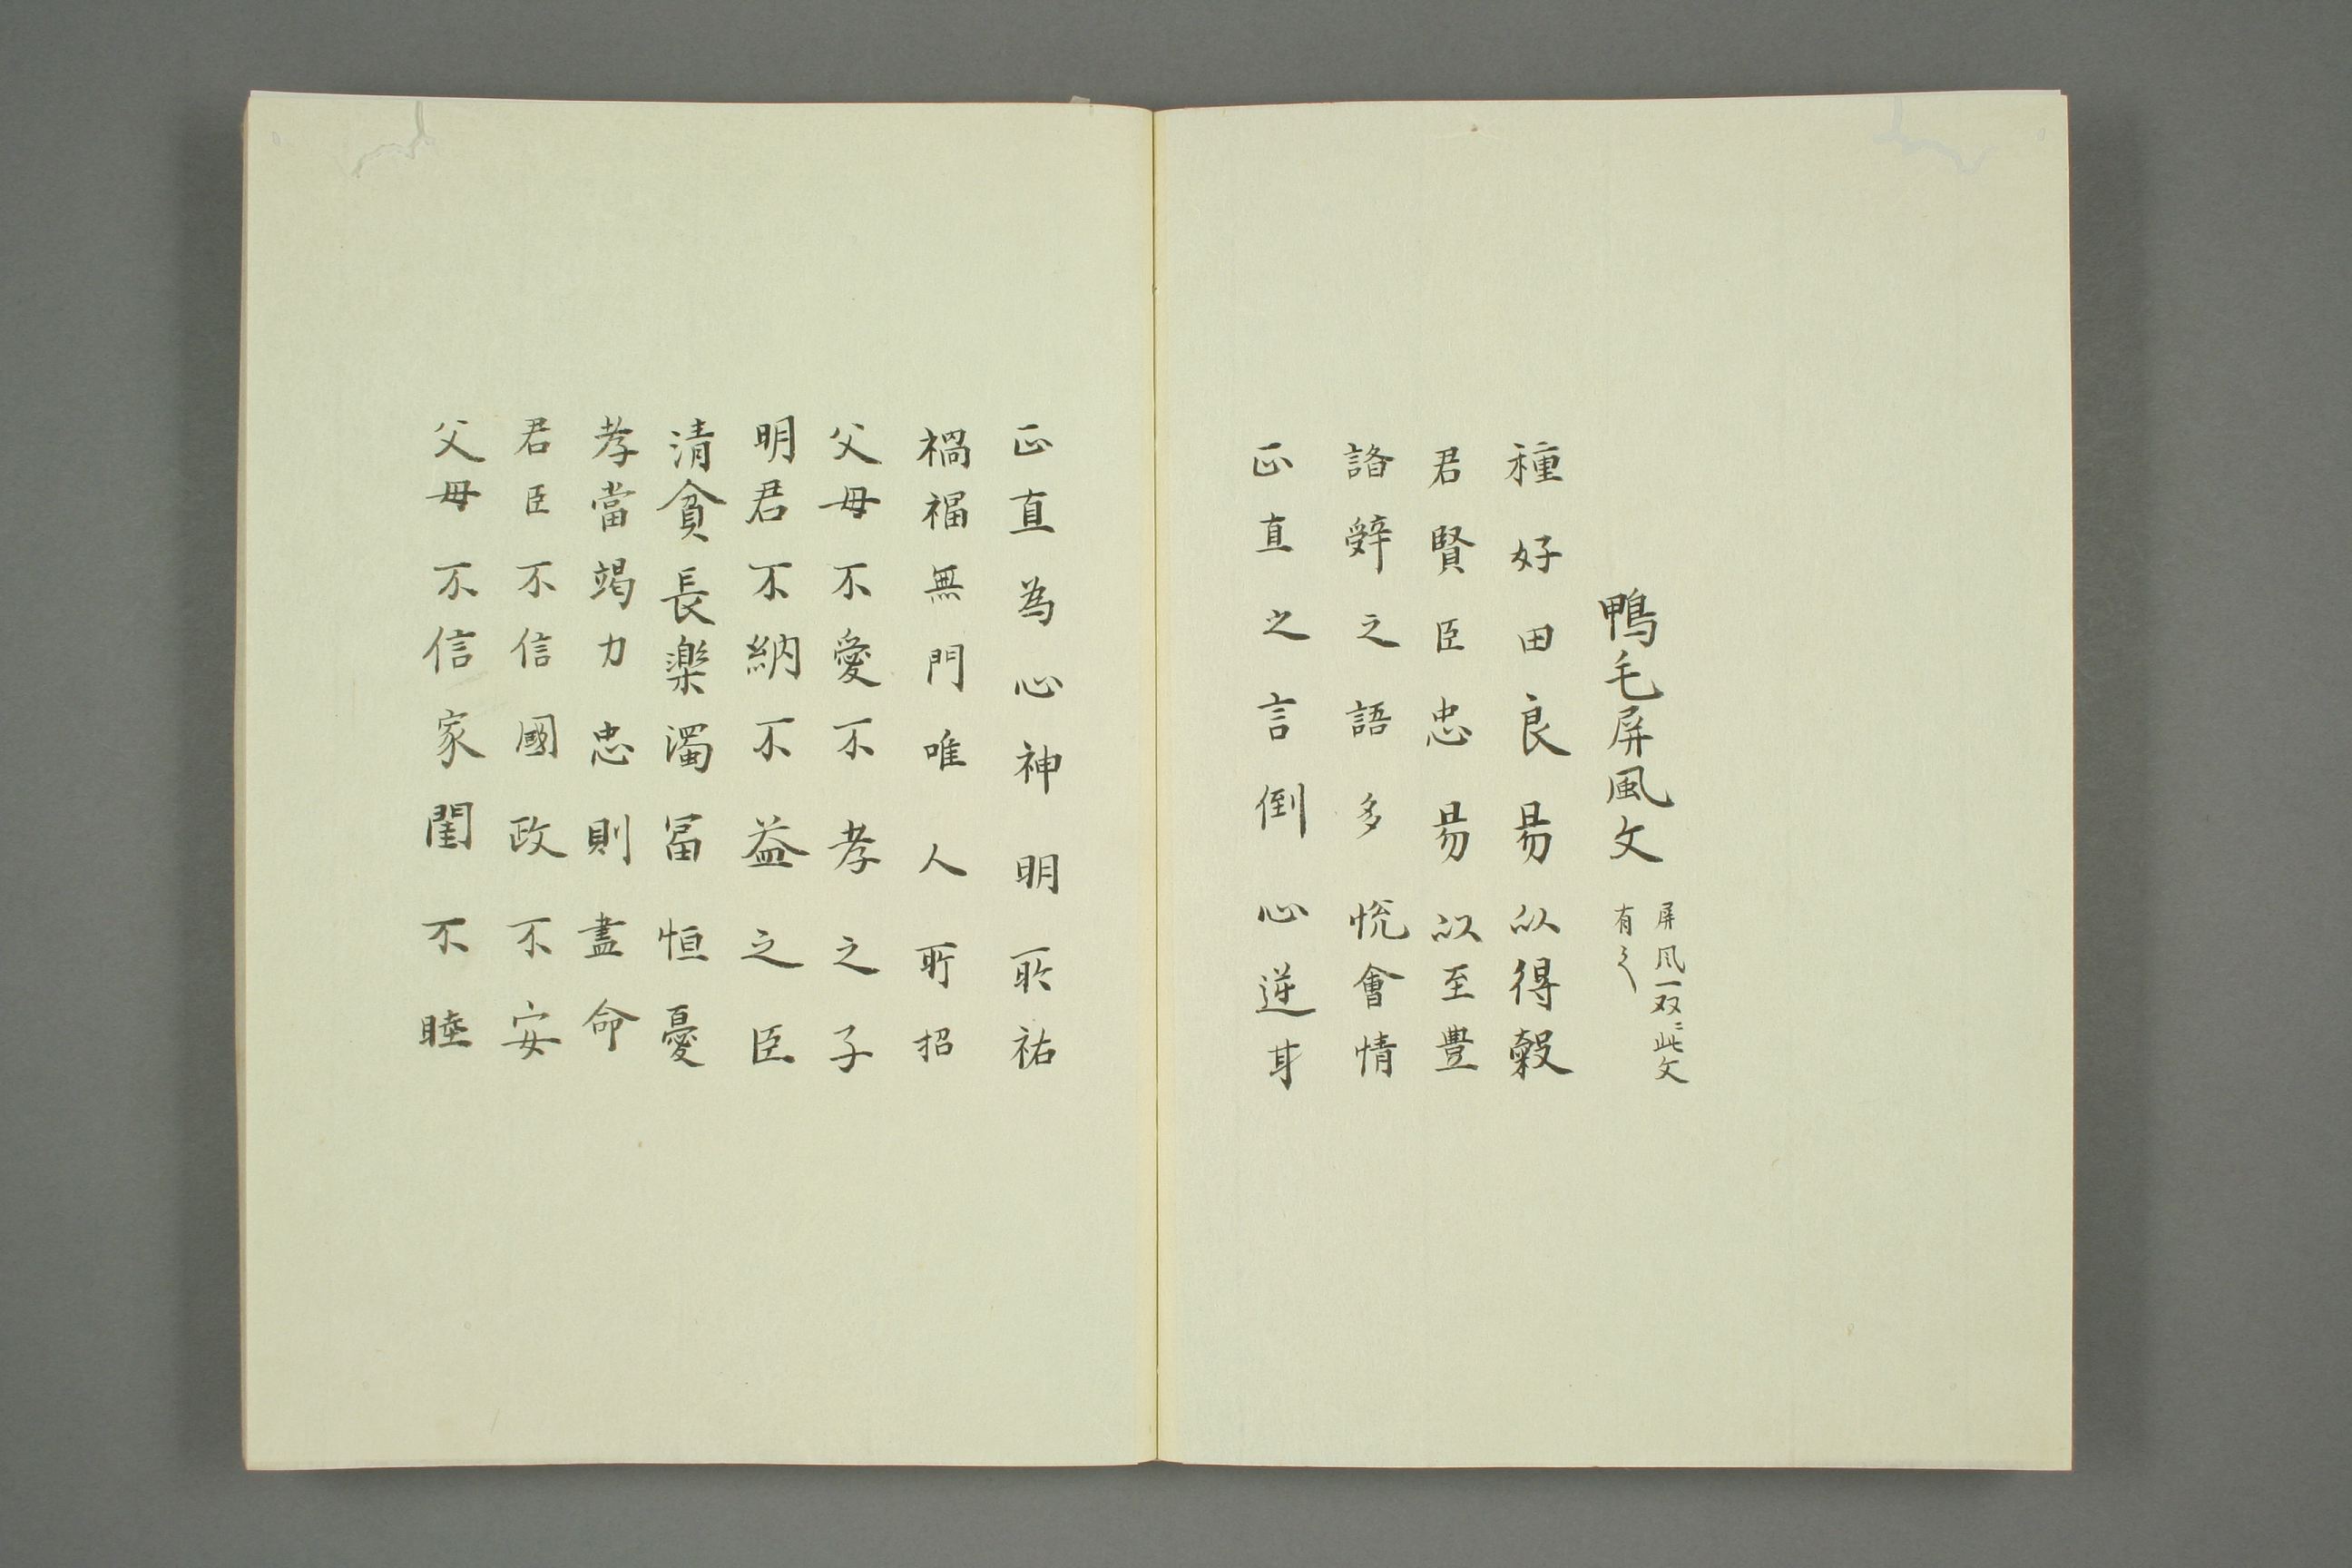 鴨毛屏風文
屏風一双ニ此文
有之
種好田良易以得穀
君賢臣忠易以至豊
諮辞之語多悦會情
正直之言倒心逆耳
正直為心神明所祐
禍福無門唯人所招
父母不愛不孝之子
明君不納不益之臣
清貧長楽濁冨恒憂
孝當竭力忠則盡命
君臣不信國政不安
父母不信家閨不睦